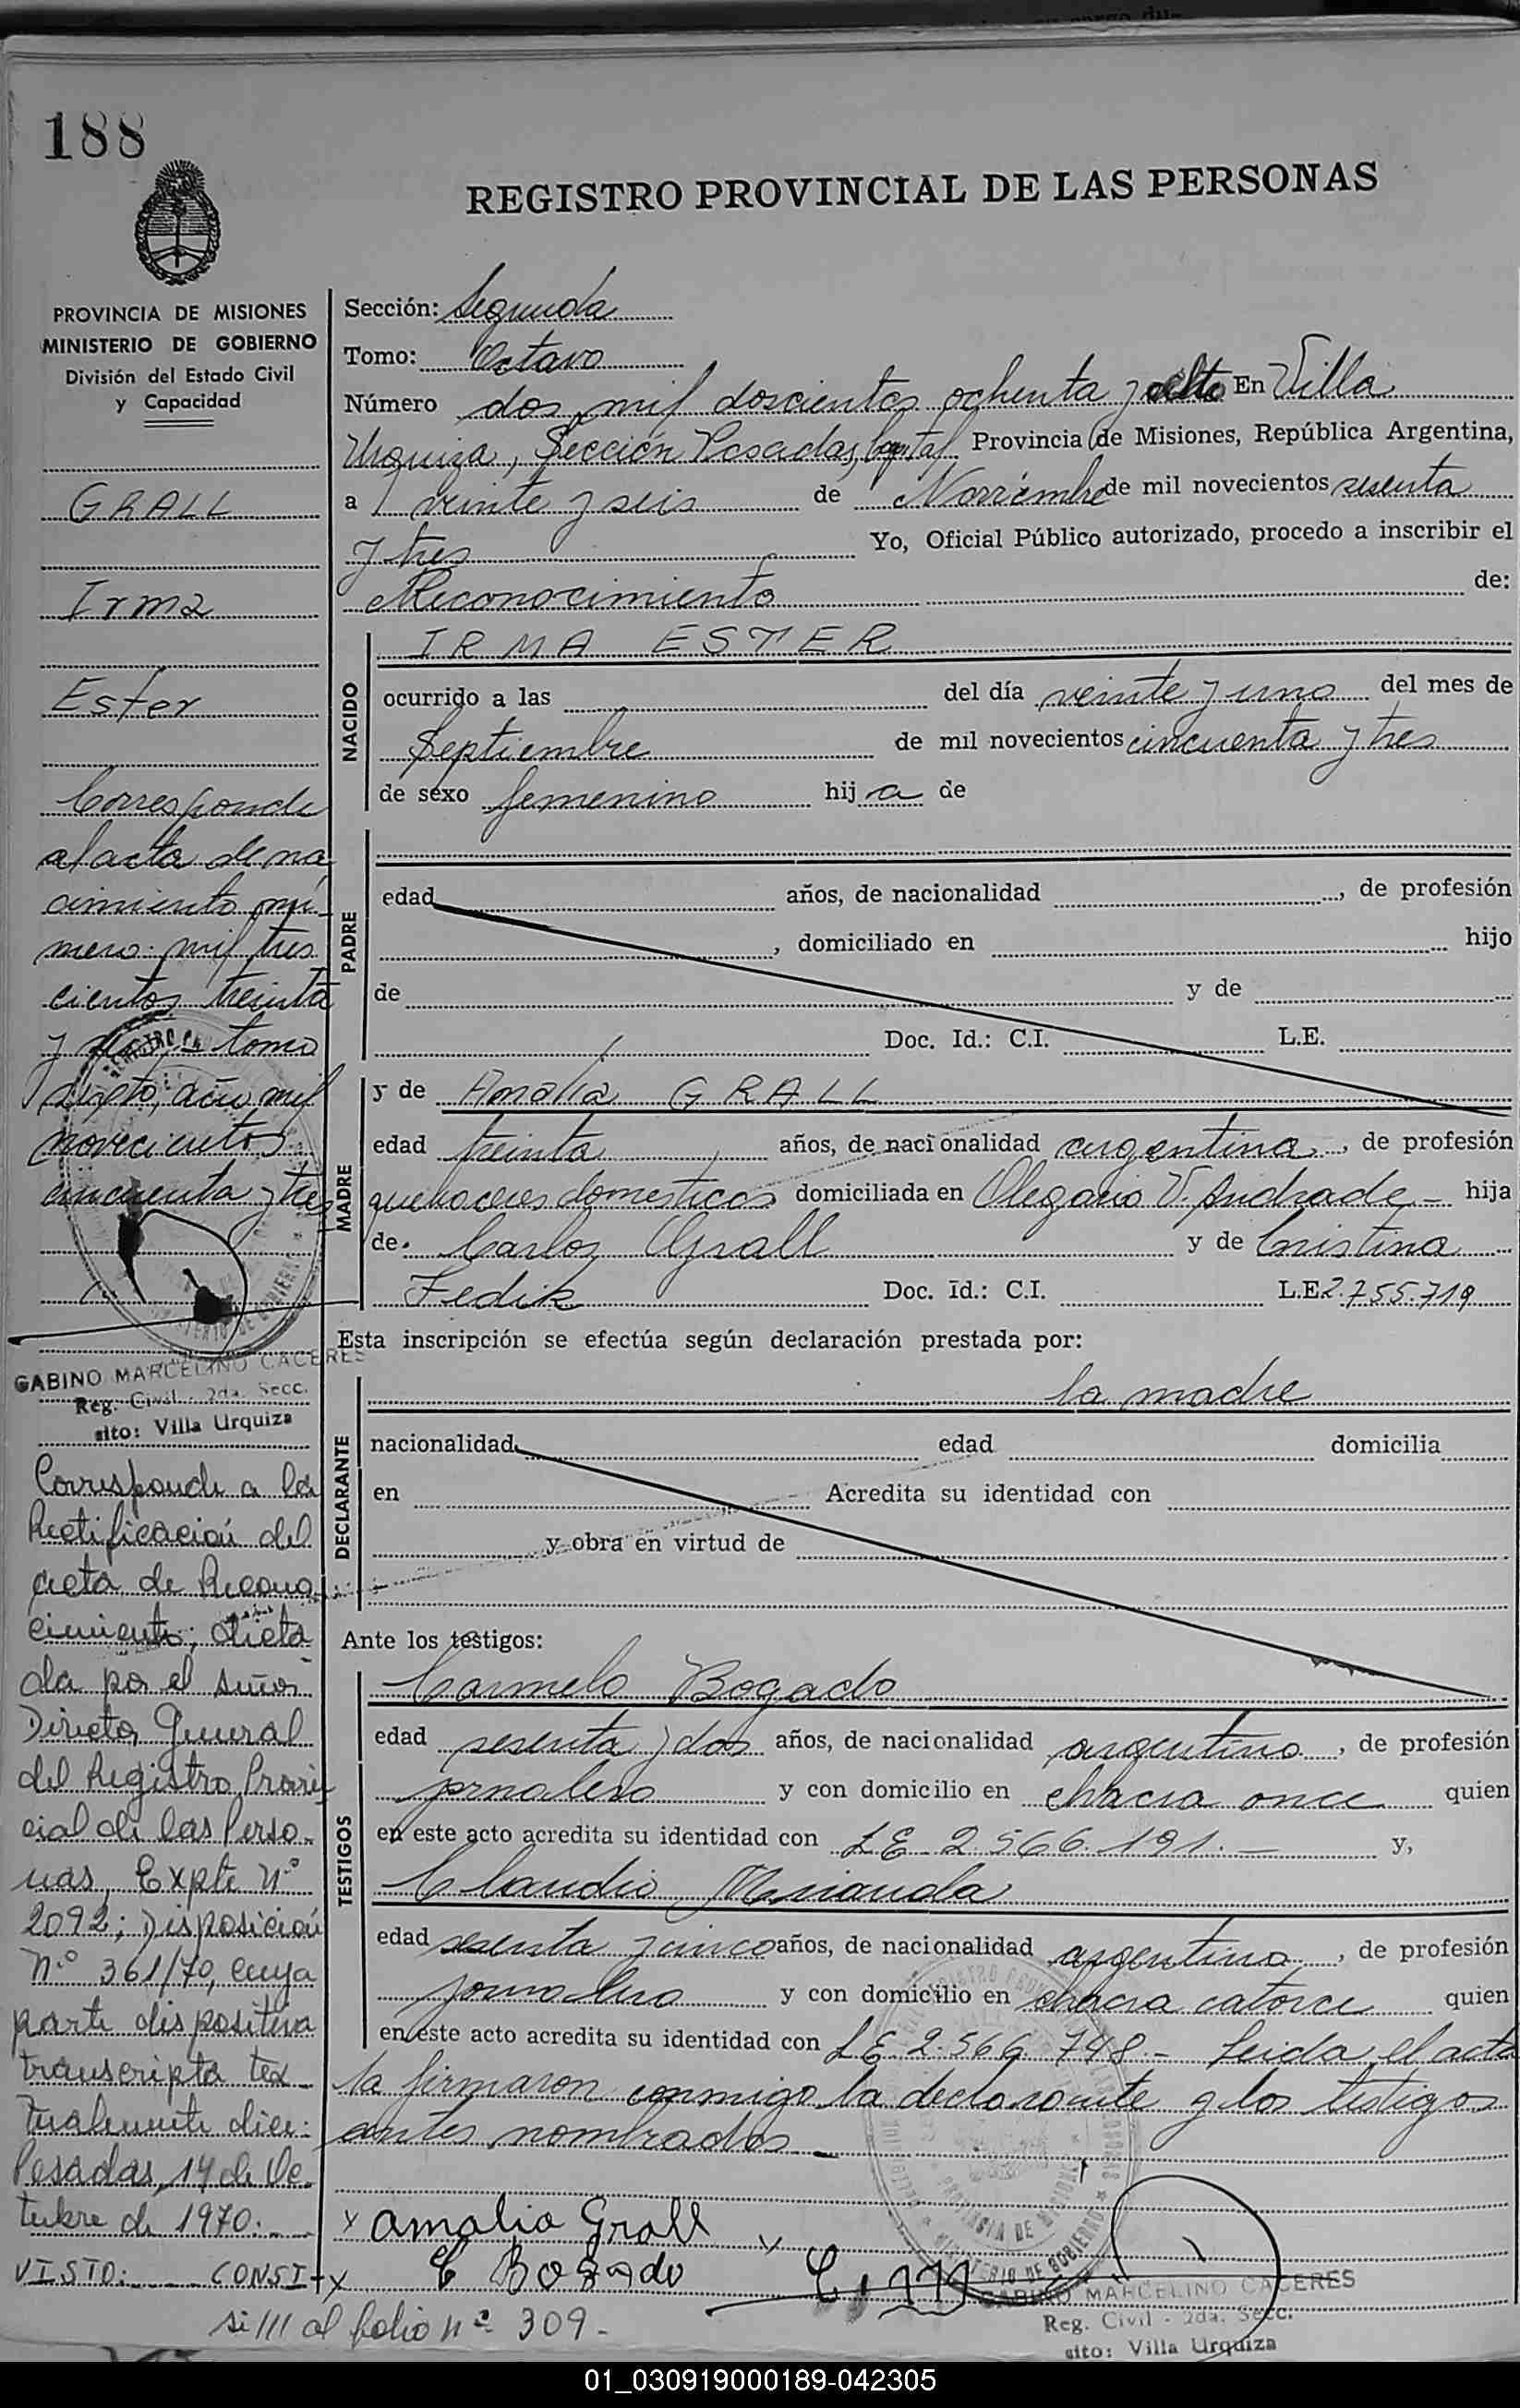 188
REGISTRO PROVINCIAL DE LAS PERSONAS
PROVINCIA DE MISIONES
MINISTERIO DE GOBIERNO
División del Estado Civil
y Capacidad
GRALL
Irma
Ester
Corresponde
al acta de na
cimiento nú-
mero: mil tres
cientos treinta
y tomo
año mil
novecientos
cincuenta y tres
GABINO MARCELINO CACERES
Reg. Civil - 2da. Secc.
sito: Villa Urquiza
Corresponde a la
Rectificación del
acta de Recono
cimiento; dicta
da por el señor
Director General
del Registro Provin
cial de las Perso-
nas, Expte Nº
2092; Disposición
Nº 361/70, cuya
parte dispositiva
transcripta tex-
tualmente dice:
Posadas, 14 de Oc-
tubre de 1970.-
VISTO: CONSI-
Sección: Segunda
Tomo: Octavo
Número dos mil doscientos ochenta y En Villa
Urquiza, Sección Posadas, Capital Provincia de Misiones, República Argentina,
a veinte y seis de Noviembre de mil novecientos sesenta
y tres Yo, Oficial Público autorizado, procedo a inscribir el
Reconocimiento de:
NACIDO
IRMA ESTER
ocurrido a las del día veinte y uno del mes de
Septiembre de mil novecientos cincuenta y tres
de sexo femenino hija de
PADRE
edad años, de nacionalidad , de profesión
, domiciliado en hijo
de y de
Doc. Id.: C.I. L.E.
MADRE
y de Amalia GRALL
edad treinta años, de nacionalidad argentina, de profesión
quehaceres domesticos domiciliada en Olegario V. Andrade - hija
de Carlos Grall y de Cristina
Fedik Doc. Id.: C.I. L.E 2.755.719
Esta inscripción se efectúa según declaración prestada por:
DECLARANTE
la madre
nacionalidad edad domicilia
en Acredita su identidad con
y obra en virtud de
Ante los testigos:
TESTIGOS
Carmelo Bogado
edad sesenta y dos años, de nacionalidad argentino, de profesión
jornalero y con domicilio en chacra once quien
en este acto acredita su identidad con LE 2.566.191.- y,
Claudio Miranda
edad sesenta y cinco años, de nacionalidad argentino, de profesión
jornalero y con domicilio en chacra catorce quien
en este acto acredita su identidad con LE 2.566.748.- Leida el acta
la firmaron conmigo la declarante y los testigos
antes nombrados.-
x Amalia Grall
x C Bogado
GABINO MARCELINO CACERES
Reg. Civil - 2da. Secc.
sito: Villa Urquiza
si/// al folio nº 309.-
01_030919000189-042305